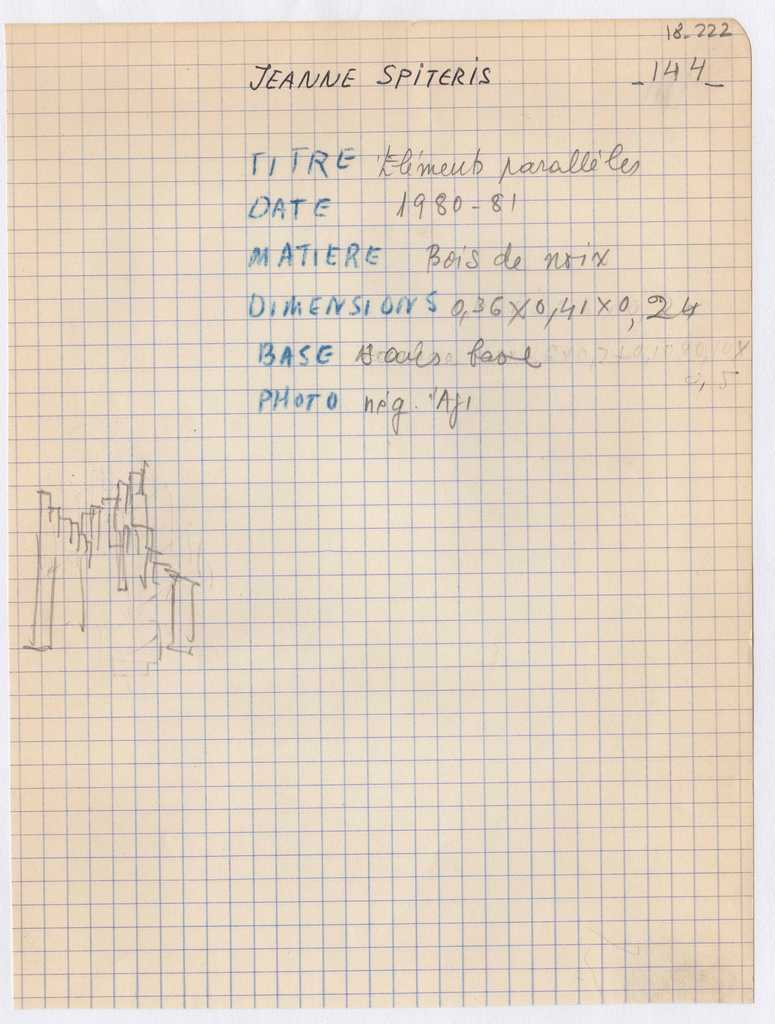 18-222
JEANNE SPITERIS
_144_
TITRE Eléments parallèles
DATE 1980-81
MATIERE Bois de noix
DIMENSIONS 0,36X0,41X0,24
BASE base
0,5
PHOTO nég. Agi